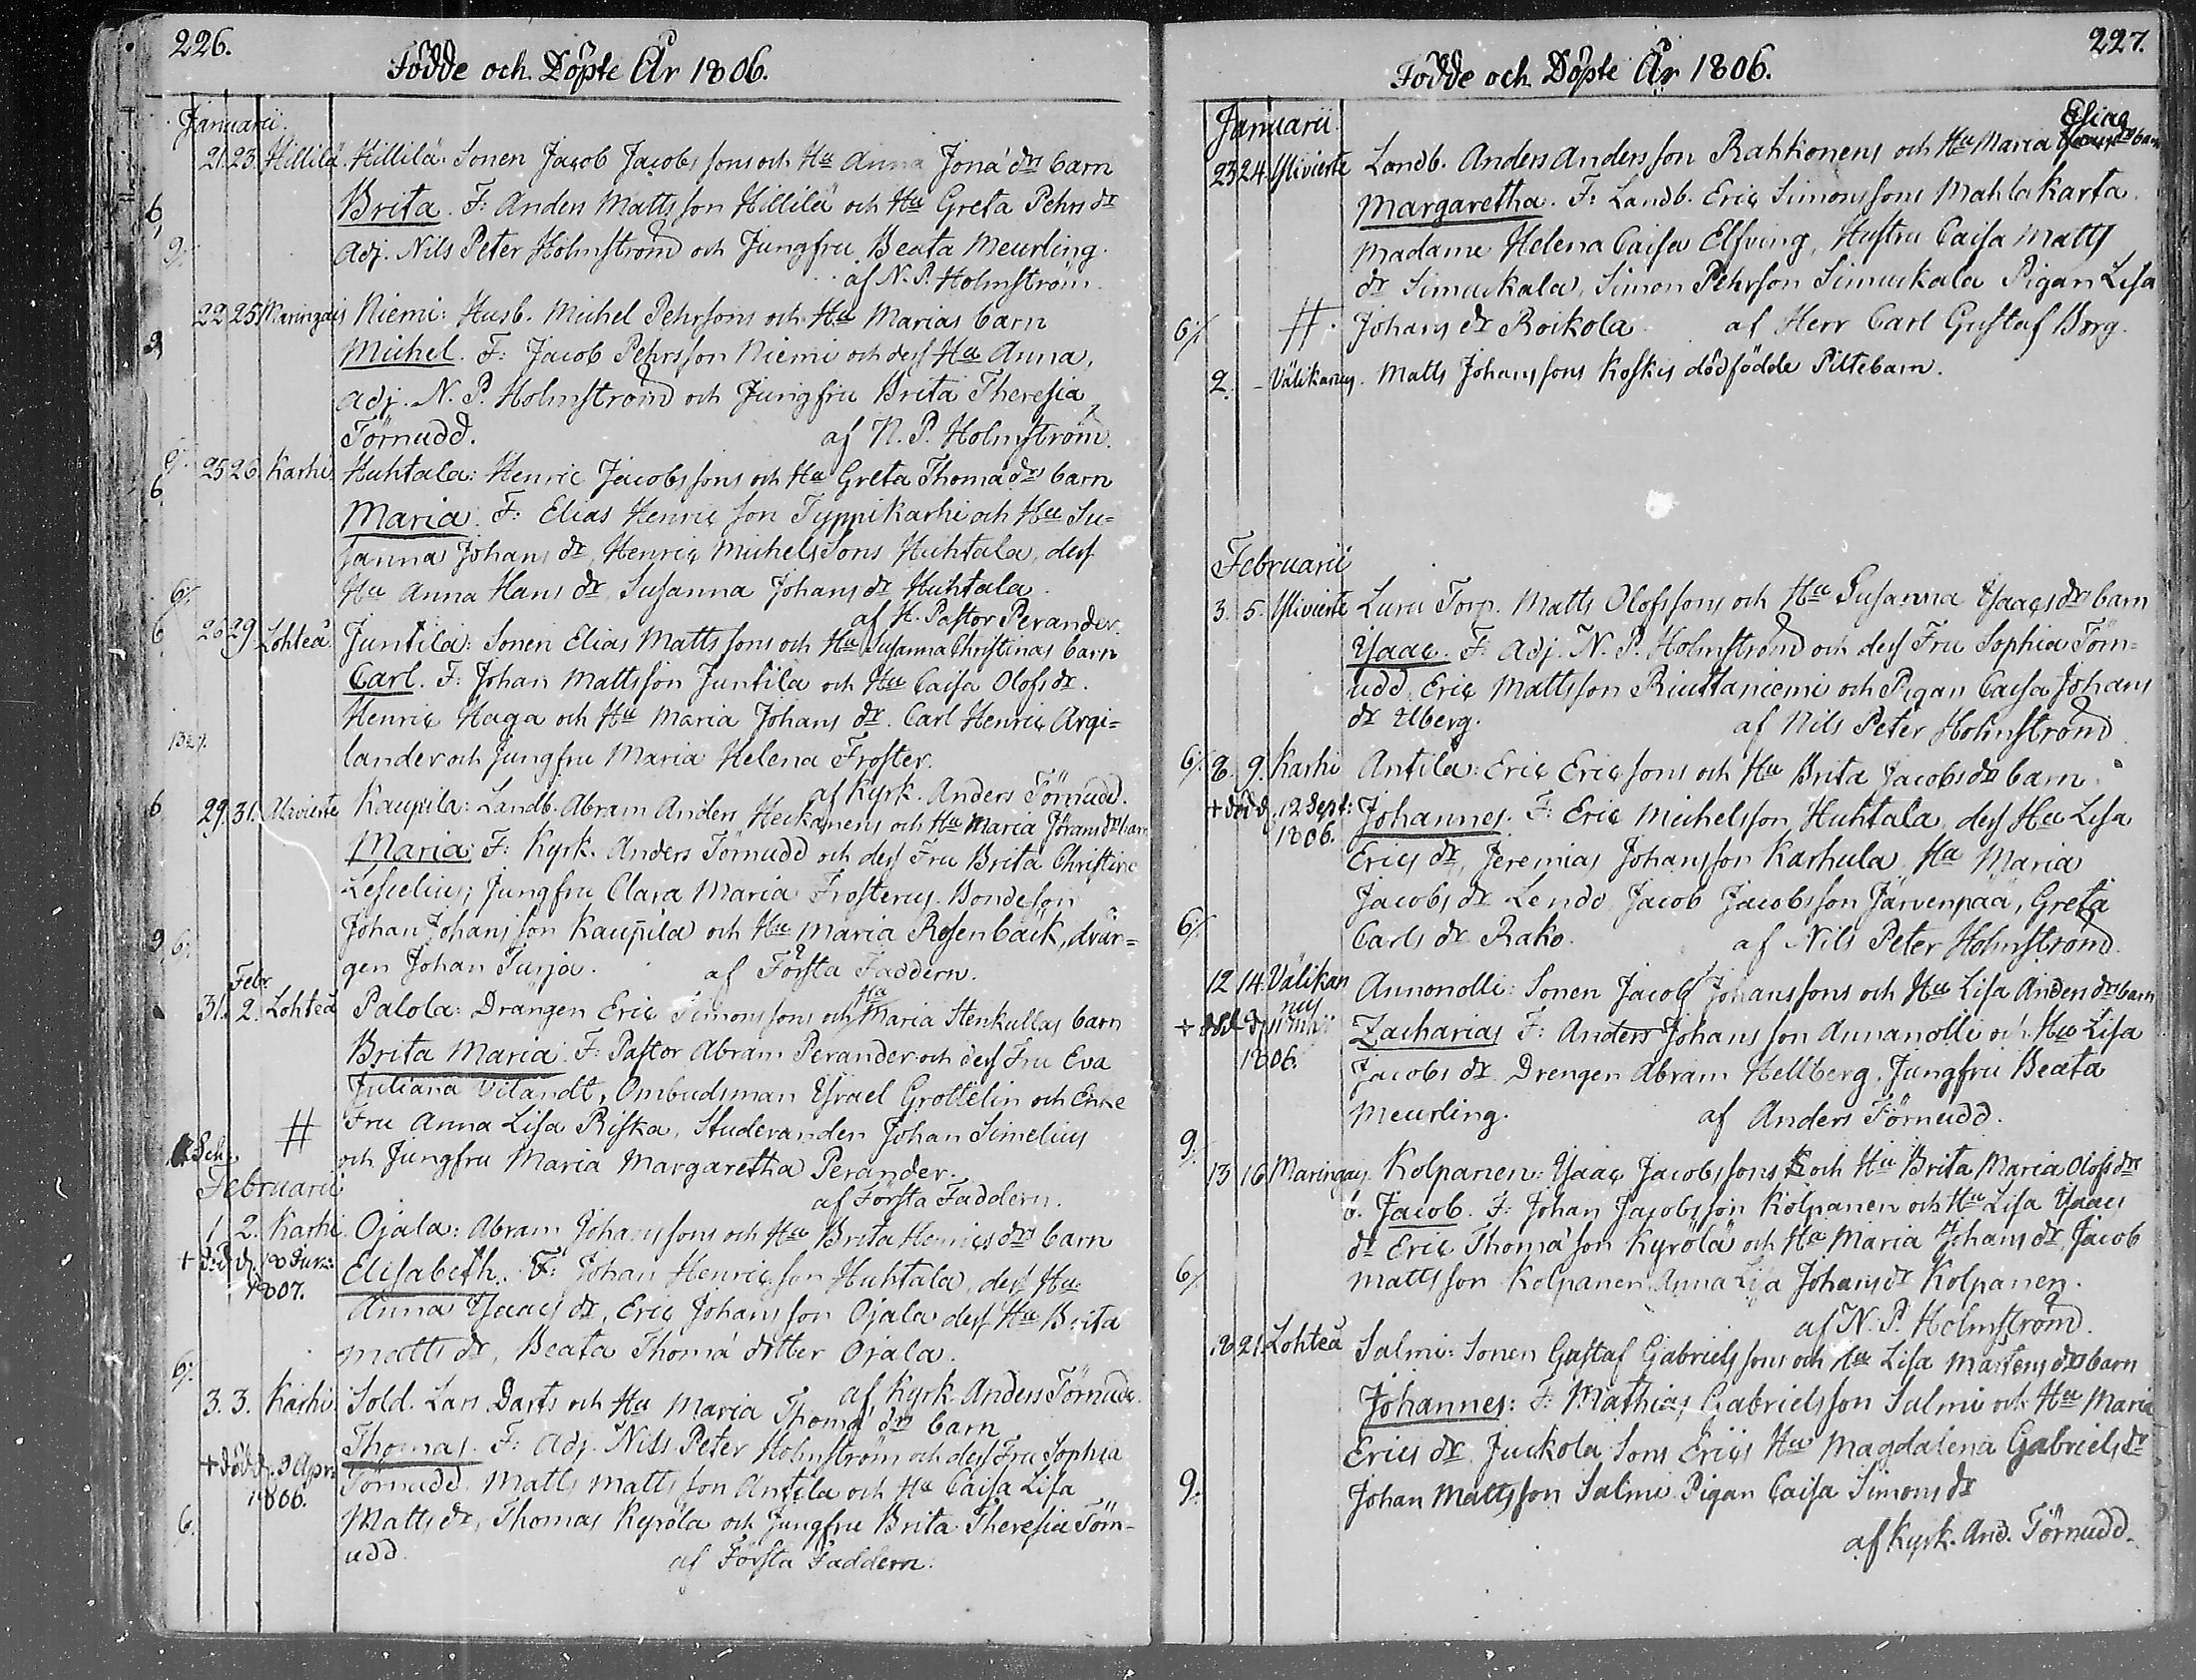 226.
Födde och Döpte År 1806.
Januarii.
21. 23. Hillilä. Hillilä: Sonen Jacob Jacobs sons och Hu Anna Jona drs barn
6. Brita. F: Anders Matts son Hillilä och Hu Greta Pehrs dr
9. Adj. Nils Peter Holmström och Jungfru Beata Meurling.
af N. P. Holmström.
22 25 Maringais Niemi: Husb. Michel Pehrsons och Hu Marias barn
9 Michel. F: Jacob Pehrsson Niemi och dess Hu Anna,
Adj. N. P. Holmström och Jungfru Brita Theresia
Törnudd. af N. P. Holmström.
9. 25 26 Karhi Huhtala: Henric Jacobs sons och Hu Greta Thoma drs barn
6. Maria. F: Elias Henric son Typpikarhi och Hu Su=
sanna Johans dr, Henric Michels Sons Huhtala, dess
6. Hu Anna Hans dr, Susanna Johans dr Huhtala.
af H. Pastor Perander.
6 26 29 Lohteå Juntila: Sonen Elias Matts sons och Hu Susanna Christinas barn
Carl. F: Johan Mattsson Juntila och Hu Caisa Olofs dr.
Henric Haga och Hu Maria Johans dr. Carl Henric Argi=
lander och Jungfru Maria Helena Froster.
af Kyrk. Anders Törnudd.
6 29. 31. Alivierte Kaupila: Landb. Abram Anders Heckanens och Hu Maria Jörans drs barn
Maria: F: Kyrk. Anders Törnudd och dess Fru Brita Christine
Lescelius, Jungfru Clara Maria Frosterus. Bondeson
Johan Johans son Kaupila och Hu Maria Rosenbäck, drän=
9 6. gen Johan Turja. af Första Faddern.
Febr.
31. 2. Lohteå Palola: Drängen Eric Simons sons och Hu Maria Stenkullas barn
Brita Maria. F: Pastor Abram Perander och dess Fru Eva
Juliana Vitandt, Ombudsman Ysrael Grottelin och Enke
# Fru Anna Lisa Riska, Studeranden Johan Simelius
och Jungfru Maria Margaretha Perander.
Februarii
af Första Faddern.
1. 2. Karhi. Ojala: Abram Johans sons och Hu Brita Henrics drs barn
+ död d. 18
1807. Elisabeth. F: Johan Henric son Huhtala, dess Hu
Anna Ysaacs dr, Eric Johans son Ojala dess Hu Brita
Matts dr, Beata Thoma dotter Ojala.
6. af Kyrk. Anders Törnudd.
3. 3. Karhi Sold. Lars Darts och Hu Maria Thoma drs barn
Thomas. F: Adj. Nils Peter Holmström och dess Fru Sophia
+ död d. 9 Apr: Törnudd. Matts Matts son Antila och Hu Caisa Lisa
1806.
6. Matts dr, Thomas Kyröla och Jungfru Brita Theresia Törn-
udd. af Första Faddern.
227.
Födde och Döpte År 1806.
Januarii.
Elias
23 24. Ylivierte Landb. Anders Anders son Rahkonens och Hu Maria drs barn
Margaretha. F: Landb. Eric Simons sons Mahlakarta.
Madame Helena Caisa Elfving, Hustru Caisa Matts
dr Simuckala, Simon Pehrson Simuckala Pigan Lisa
6. # Johans dr Roikola. af Herr Carl Gustaf Borg.
2. - Välikanus. Matts Johans sons Koskis dödfödde Piltebarn.
Februarii
3. 5. Ylivierte Luru Torp. Matts Olofs sons och Hu Susanna Ysaacs drs barn
Ysaac. F: Adj. N. P. Holmström och dess Fru Sophia Törn=
udd, Eric Mattsson Riuttaniemi och Pigan Caisa Johans
dr Uberg. af Nils Peter Holmström
6. 8. 9. Karhi Antila: Eric Eric sons och Hu Brita Jacobs drs barn
+ död d. 12 Sept: Johannes. F: Eric Michelsson Huhtala, dess Hu Lisa
1806. Erics dr, Jeremias Johansson Karhula, Hu Maria
Jacobs dr Lendo, Jacob Jacobsson Järvenpää, Greta
6. Carls dr Raho. af Nils Peter Holmström
12 14. Välikan
nus Annonolli: Sonen Jacob Johans sons och Hu Lisa Anders drs barn
+ död d. Maji Zacharias F: Anders Johans son Annanolli och Hu Lisa
1806. Jacobs dr. Drengen Abram Hellberg, Jungfru Beata
Meurling. af Anders Törnudd.
9.
13 16 Maringais Kolpanen: Ysaac Jacobs sons och Hu Brita Maria Olofs drs
b. Jacob. F: Johan Jacobs son Kolpanen och Hu Lisa Ysaacs
dr Eric Thoma son Kyrölä och Hu Maria Johans dr, Jacob
6. Matts son Kolpanen Anna Lisa Johans dr Kolpanen.
af N. P. Holmström.
18 21. Lohteå Salmi: Sonen Gustaf Gabriels sons och Hu Lisa Martens drs barn
Johannes: F: Mathias Gabrielsson Salmi och Hu Maria
Erics dr Juckola Sons Erics Hu Magdalena Gabriels dr
9. Johan Mattsson Salmi Pigan Caisa Simons dr
af Kyrk. And. Törnudd.